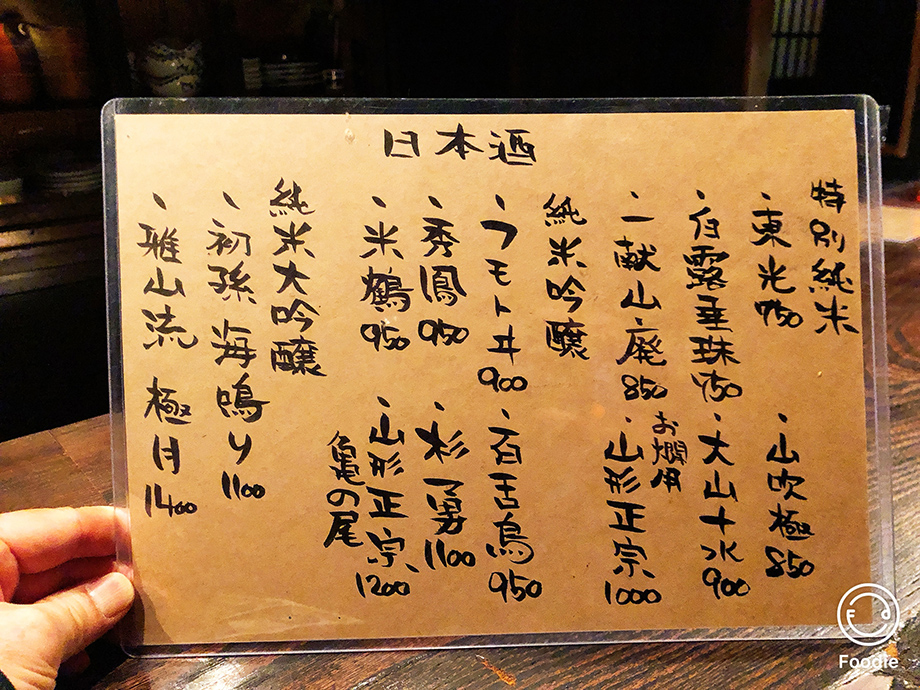 日本酒
特別純米
、東光 750
、山吹極 850
、白露垂珠 750
、大山十水 900
、一献山廃 850
お燗用
、山形正宗 1000
純米吟醸
、フモトヰ 900
、百舌鳥 950
、秀鳳 950
、杉勇 1100
、米鶴 950
、山形正宗 1200
亀の尾
純米大吟醸
、初孫 海鳴り 1100
、雅山流 極月 1400
Foodie